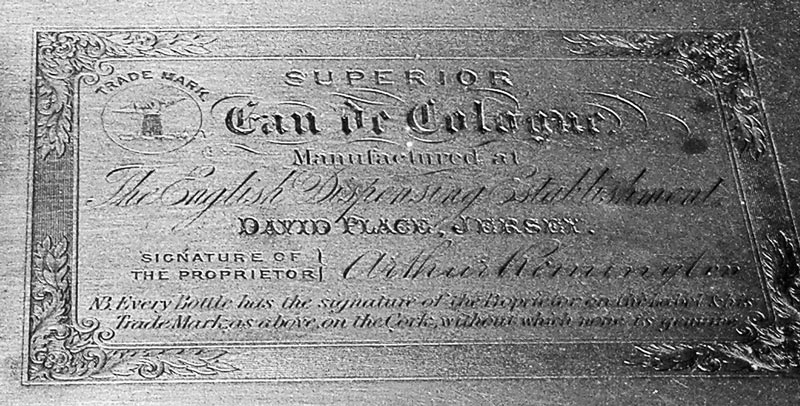 TRADE MARK
SUPERIOR
Eau de Cologne.
Manufactured at
The English Dispensing Establishment.
DAVID PLACE, JERSEY.
SIGNATURE OF
THE PROPRIETOR
Arthur Remington
NB. Every Bottle has the signature of the Proprietor on the label & his
Trade Mark, as above, on the Cork, without which none is genuine